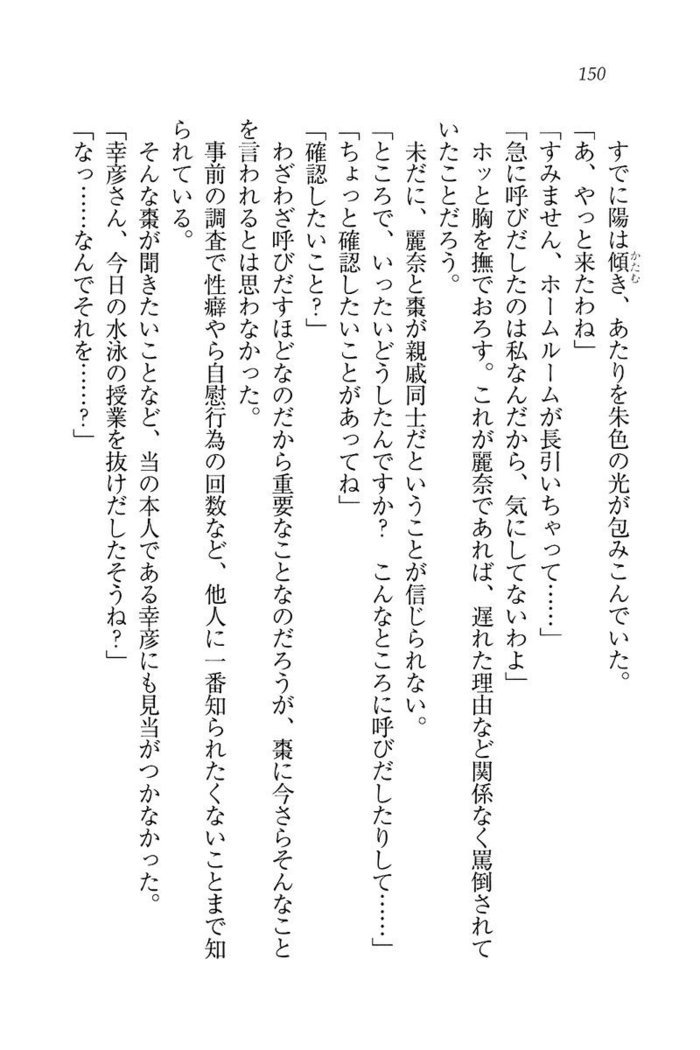 150
すでに陽は傾き、あたりを朱色の光が包みこんでいた。
かたむ
「あ、やっと来たわね」
「すみません、ホームルームが長引いちゃって……」
「急に呼びだしたのは私なんだから、気にしてないわよ」
ホッと胸を撫でおろす。これが麗奈であれば、遅れた理由など関係なく罵倒されて
いたことだろう。
未だに、麗奈と棗が親戚同士だということが信じられない。
「ところで、いったいどうしたんですか？　こんなところに呼びだしたりして……」
「ちょっと確認したいことがあってね」
「確認したいこと？」
わざわざ呼びだすほどなのだから重要なことなのだろうが、棗に今さらそんなこと
を言われるとは思わなかった。
事前の調査で性癖やら自慰行為の回数など、他人に一番知られたくないことまで知
られている。
そんな棗が聞きたいことなど、当の本人である幸彦にも見当がつかなかった。
「幸彦さん、今日の水泳の授業を抜けだしたそうね？」
「なっ……なんでそれを……？」